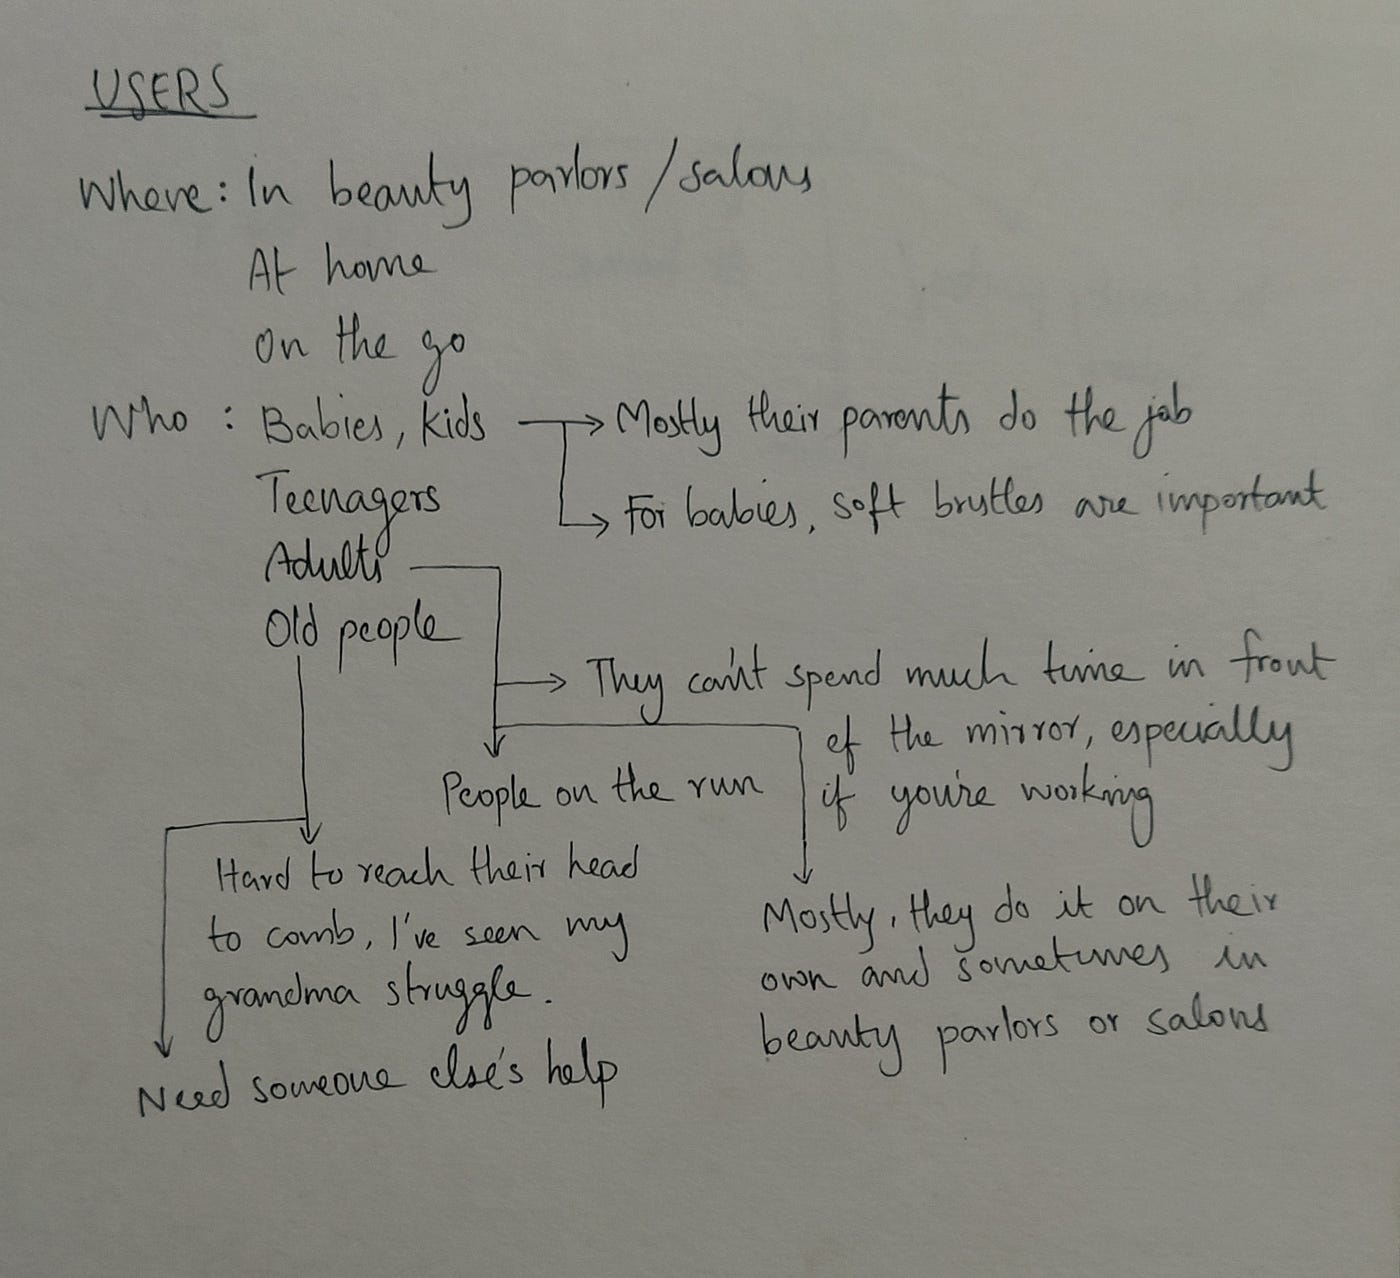 USERS
Where: In beauty parlors / salons
At home
On the go
Who : Babies, kids → Mostly their parents do the job
→ For babies, soft brustles are important
Teenagers
Adults
Old people
→ They can't spend much time in front
of the mirror, especially
if you're working
People on the run
Hard to reach their head
to comb, I've seen my
grandma struggle.
Need someone else's help
Mostly, they do it on their
own and sometimes in
beauty parlors or salons